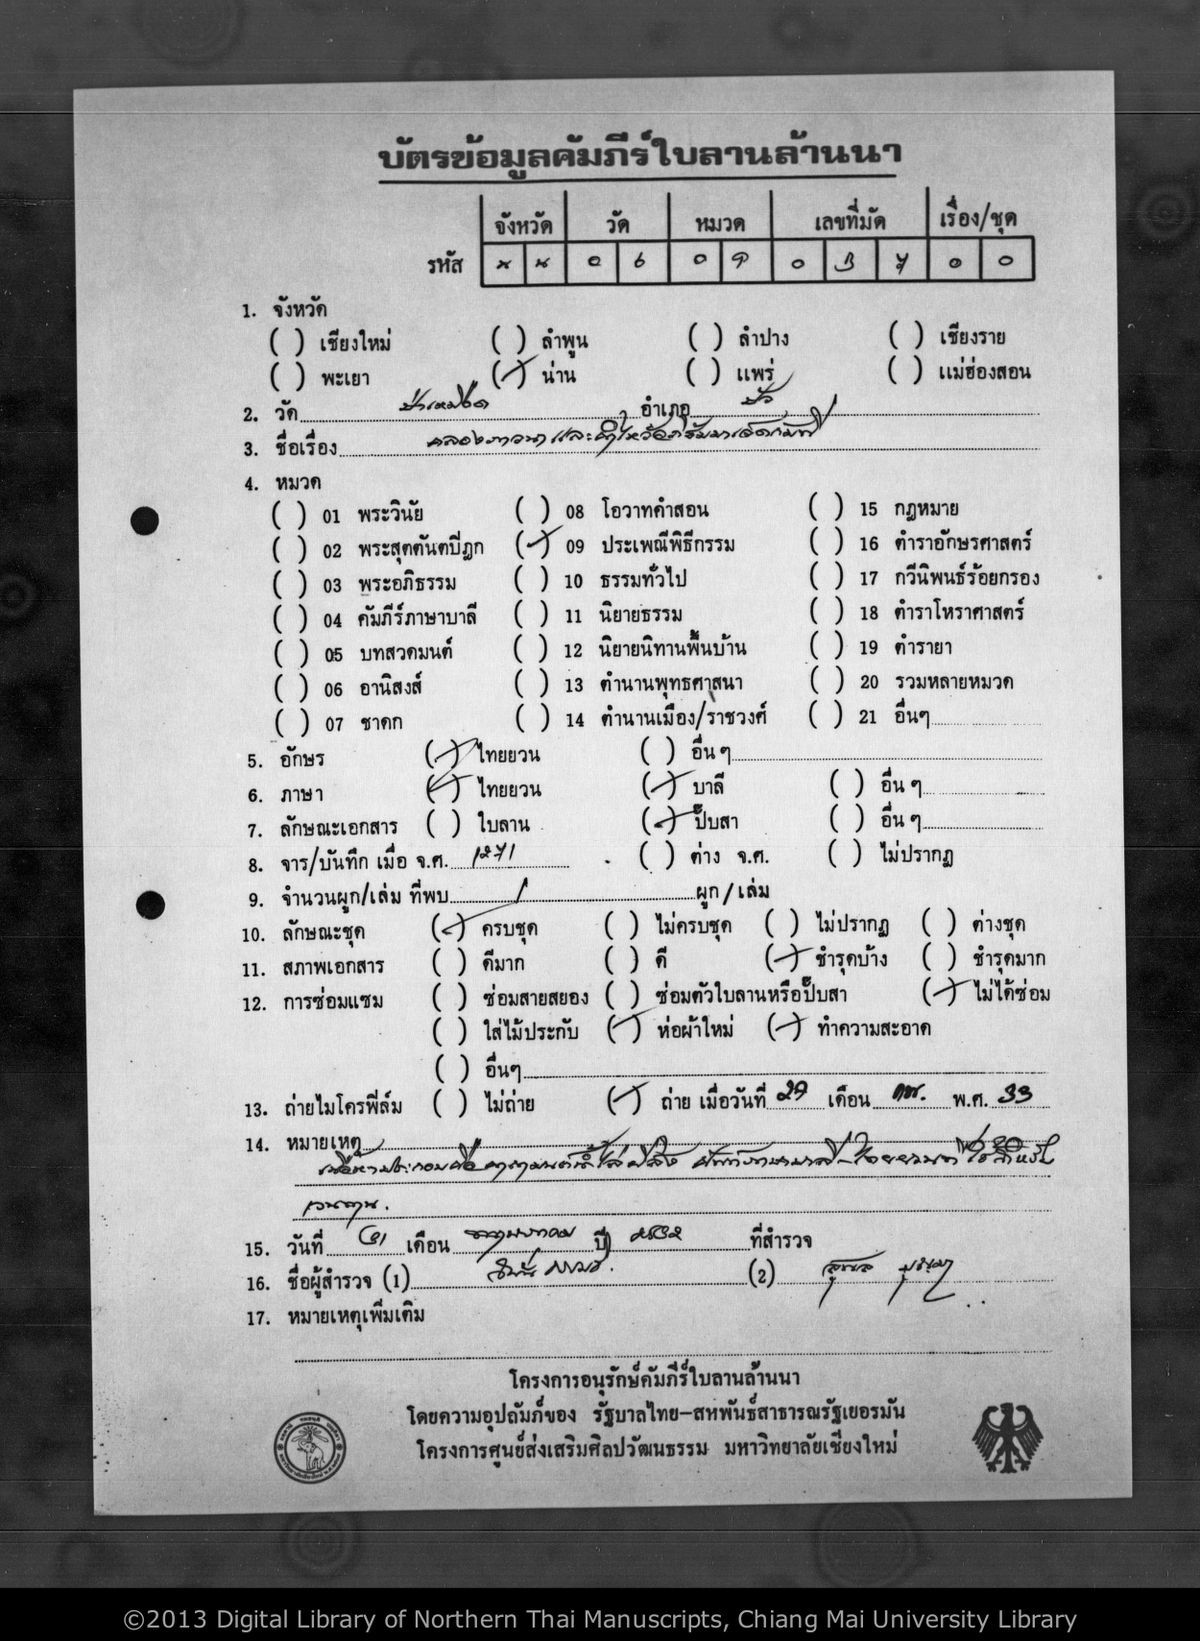 บัตรข้อมูลคัมภีร์ใบลานล้านนา
จังหวัด วัด หมวด เลขที่มัด เรื่อง/ชุด
รหัส
1. จังหวัด
( ) เชียงใหม่ ( ) ลำพูน ( ) ลำปาง ( ) เชียงราย
( ) พะเยา (/) น่าน ( ) แพร่ ( ) แม่ฮ่องสอน
2. วัด อำเภอ ปัว
3. ชื่อเรื่อง
4. หมวด
( ) 01 พระวินัย ( ) 08 โอวาทคำสอน ( ) 15 กฎหมาย
( ) 02 พระสุตตันตปิฎก (/) 09 ประเพณีพิธีกรรม ( ) 16 ตำราอักษรศาสตร์
( ) 03 พระอภิธรรม ( ) 10 ธรรมทั่วไป ( ) 17 กวีนิพนธ์ร้อยกรอง
( ) 04 คัมภีร์ภาษาบาลี ( ) 11 นิยายธรรม ( ) 18 ตำราโหราศาสตร์
( ) 05 บทสวดมนต์ ( ) 12 นิยายนิทานพื้นบ้าน ( ) 19 ตำรายา
( ) 06 อานิสงส์ ( ) 13 ตำนานพุทธศาสนา ( ) 20 รวมหลายหมวด
( ) 07 ชาดก ( ) 14 ตำนานเมือง/ราชวงศ์ ( ) 21 อื่นๆ
5. อักษร (/) ไทยยวน ( ) อื่น ๆ
6. ภาษา (/) ไทยยวน (/) บาลี ( ) อื่น ๆ
7. ลักษณะเอกสาร ( ) ใบลาน (/) ปั๊บสา ( ) อื่น ๆ
8. จาร/บันทึก เมื่อ จ.ศ. 1271 ( ) ต่าง จ.ศ. ( ) ไม่ปรากฏ
9. จำนวนผูก/เล่ม ที่พบ 1 ผูก/เล่ม
10. ลักษณะชุด (/) ครบชุด ( ) ไม่ครบชุด ( ) ไม่ปรากฏ ( ) ต่างชุด
11. สภาพเอกสาร ( ) ดีมาก ( ) ดี (/) ชำรุดบ้าง ( ) ชำรุดมาก
12. การซ่อมแซม ( ) ซ่อมสายสยอง ( ) ซ่อมตัวใบลานหรือปั๊บสา (/) ไม่ได้ซ่อม
( ) ใส่ไม้ประกับ (/) ห่อผ้าใหม่ (/) ทำความสะอาด
( ) อื่นๆ
13. ถ่ายไมโครฟิล์ม ( ) ไม่ถ่าย (/) ถ่าย เมื่อวันที่ 29 เดือน พ.ศ. 33
14. หมายเหตุ
15. วันที่ เดือน พฤษภาคม ปี ๒๕๓๒ ที่สำรวจ
16. ชื่อผู้สำรวจ (1) (2)
17. หมายเหตุเพิ่มเติม
โครงการอนุรักษ์คัมภีร์ใบลานล้านนา
โดยความอุปถัมภ์ของ รัฐบาลไทย-สหพันธ์สาธารณรัฐเยอรมัน
โครงการศูนย์ส่งเสริมศิลปวัฒนธรรม มหาวิทยาลัยเชียงใหม่
©2013 Digital Library of Northern Thai Manuscripts, Chiang Mai University Library